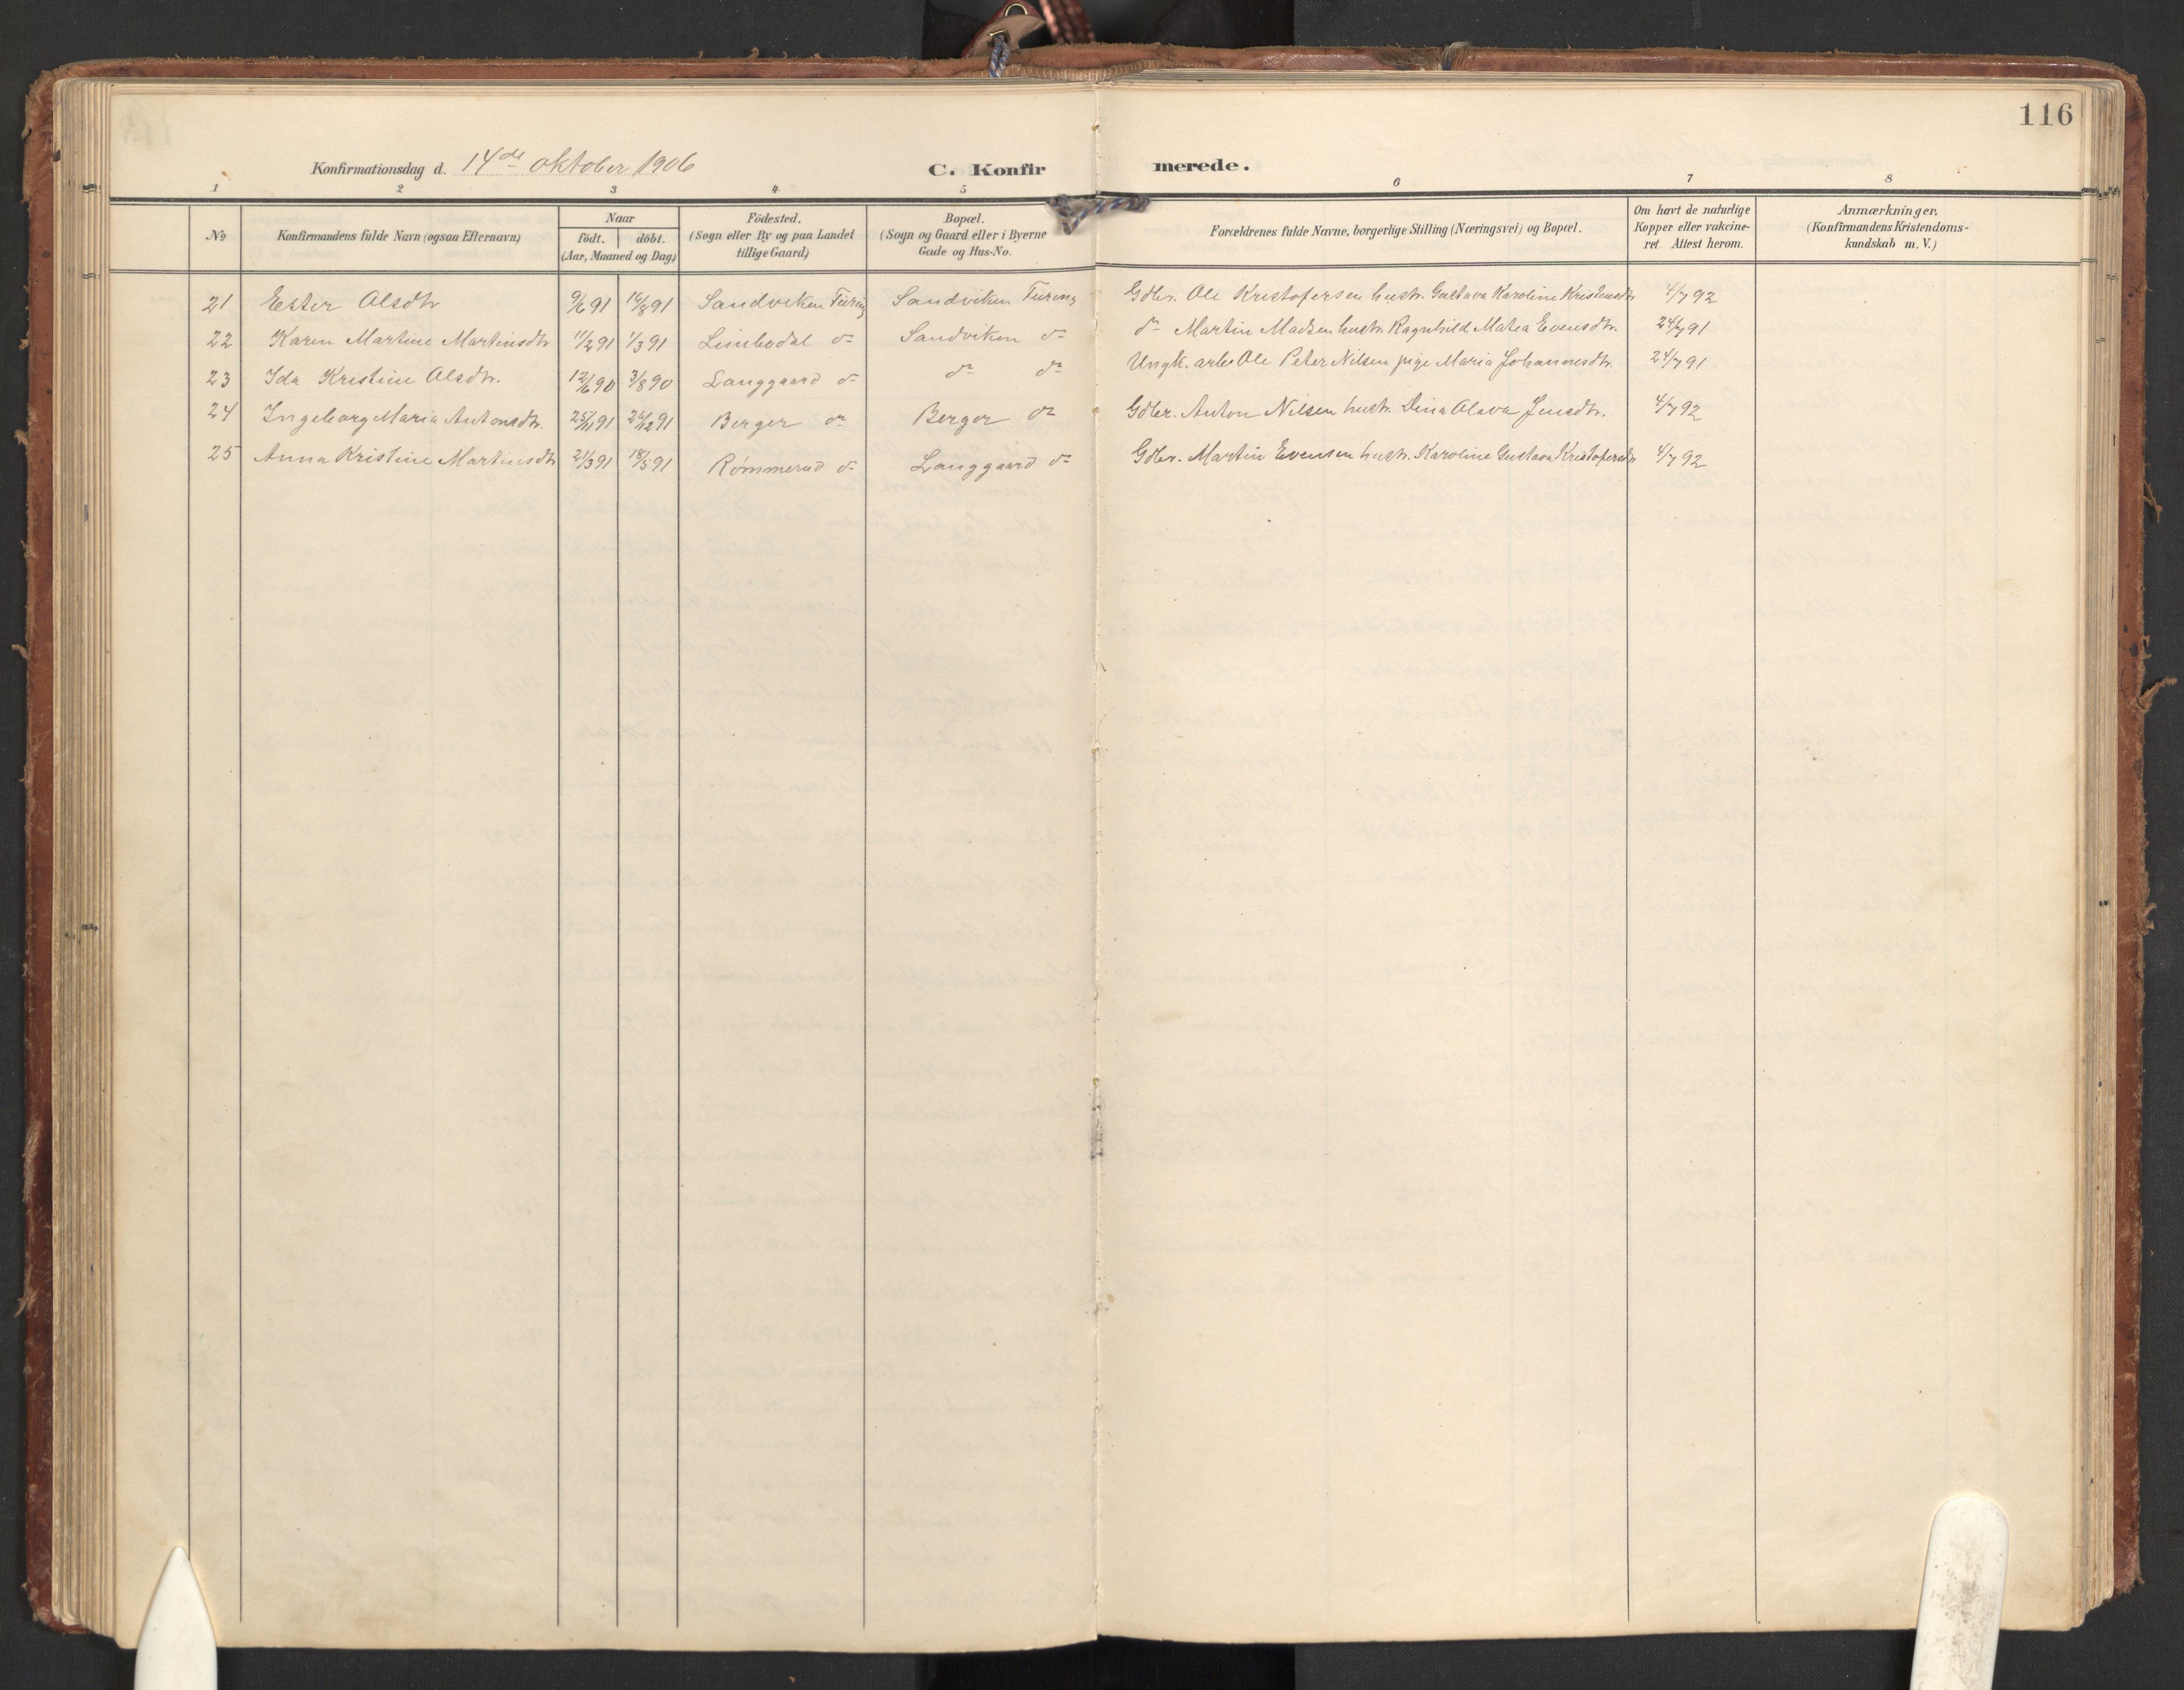 116
Konfirmationsdag d. 14de oktober 1906 C. Konfirmerede.
1 2 3 4 5 6 7 8
No Konfirmandens fulde Navn (ogsaa Efternavn) Naar födt. döbt. (Aar, Maaned og Dag) Födested. (Sogn eller By og paa Landet tillige Gaard) Bopæl. (Sogn og Gaard eller i Byerne Gade og Hus-No. Forældrenes fulde Navne, borgerlige Stilling (Næringsvei) og Bopæl. Om havt de naturlige Kopper eller vakcineret Attest herom. Anmærkninger, (Konfirmandens Kristendomskundskab m. V.)
21 Ester Olsdtr 9/6 91 16/8 91 Sandviken Sandviken Gdbr. Ole Kristofersen hustr. Gustava Karoline Kristensdtr 4/7 92
22 Karen Martine Martinsdtr 11/2 91 1/3 91 Linbodal do Sandviken do do Martin Madsen hustr. Ragnhild Matea Evensdtr. 24/7 91
23 Ida Kristine Olsdtr. 12/6 90 3/8 90 Langgaard do do do Ungk. arb. Ole Peter Nilsen pige Maria Johannesdtr. 24/7 91
24 Ingeborg Maria Antonsdtr. 25/11 91 26/12 91 Berger do Berger do Gdbr. Anton Nilsen hustr. Dina Olava Jensdtr. 4/7 92
25 Anna Kristine Martinsdtr 21/3 91 18/5 91 Rømmerud do Langgaard do Gdbr. Martin Evensen hustr. Karoline Gustava Kristofersdtr 4/7 92